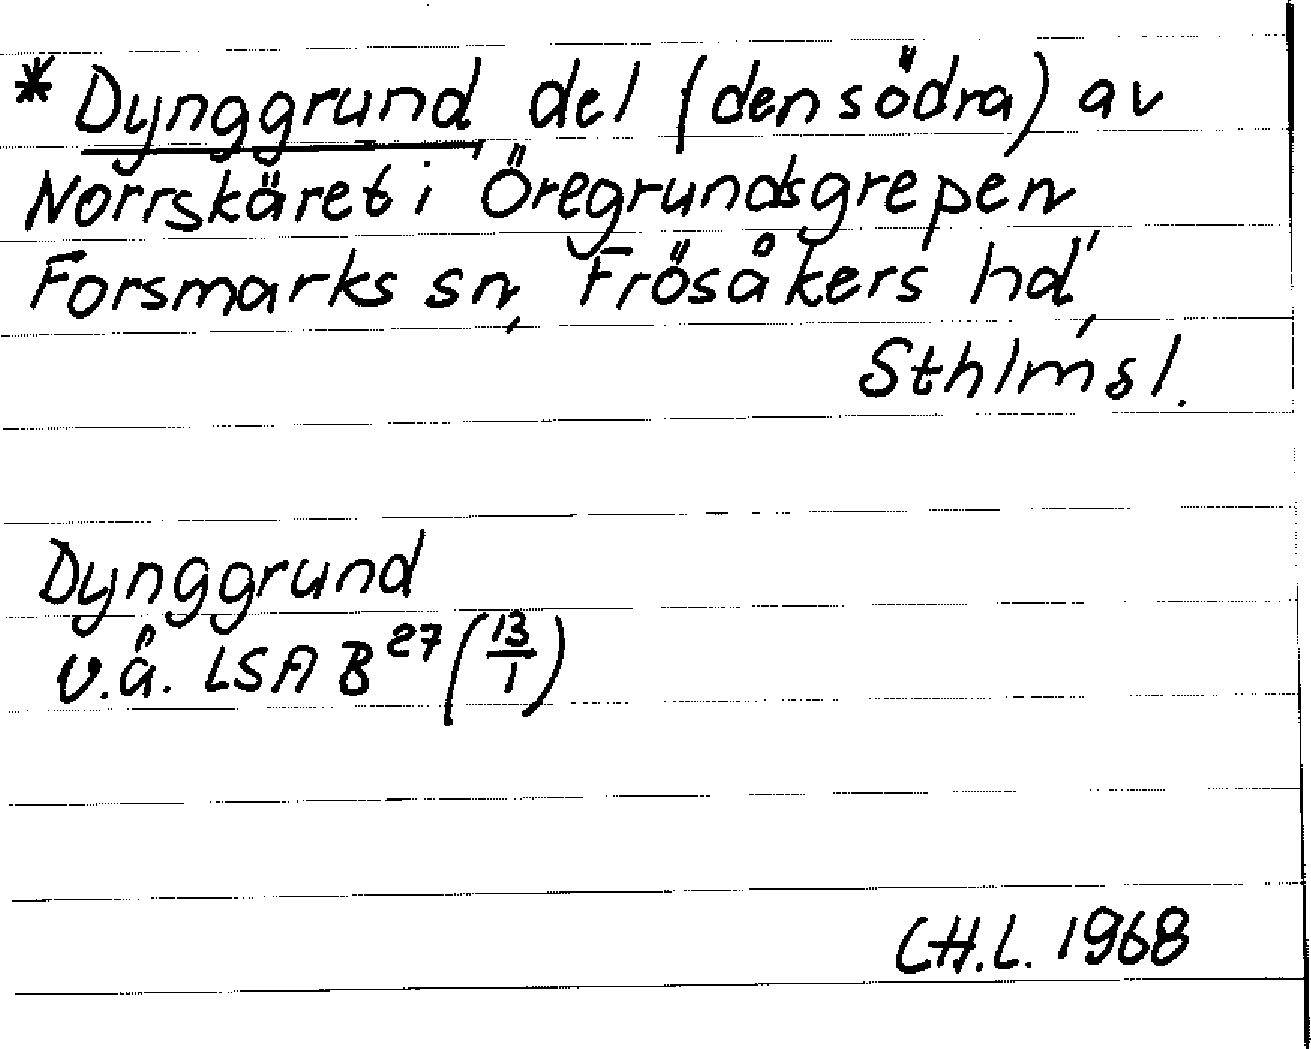 * Dynggrund del (den södra) av
Norrskäret i Öregrundsgrepen
Forsmarks sn, Frösåkers hd,
Sthlms l.
Dynggrund
v.å. LSA B 27 (13/1)
C.H.L. 1968